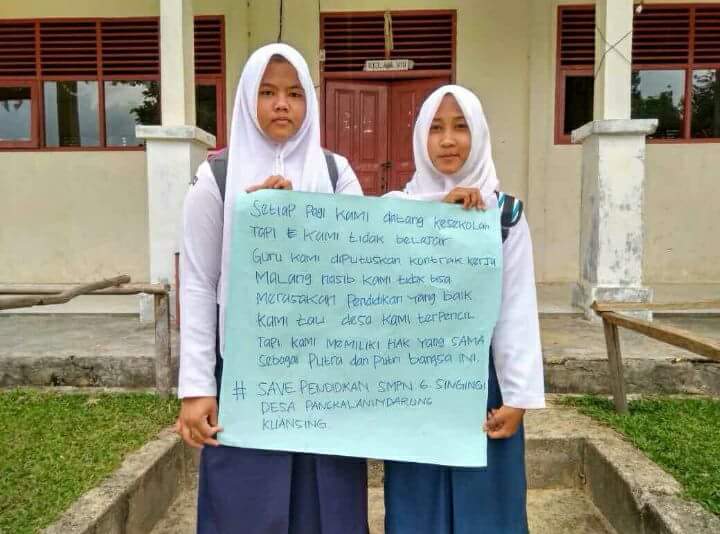 KELAS VIII
Setiap Pagi Kami datang kesekolah
Tapi Kami tidak belajar
Guru Kami diputuskan kontrak kerja
Malang nasib kami tidak bisa
Merasakan Pendidikan Yang baik
Kami tau desa Kami terpencil
Tapi Kami MEMILIKI HAK Yang SAMA
Sebagai Putra dan Putri bangsa INI.
# SAVE PENDIDKAN SMPN 6 SINGINGI
DESA PANGKALANINDARUNG
KUANSING.